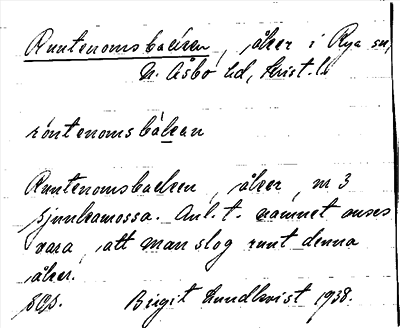 Runtenomsbacken, åker i Rya sn,
N. Åsbo hd, Krist. l.
röntenomsbákan
Runtenomsbacken, åker, nr 3
Sjunkamossa. Anl. t. namnet anses
vara, att man slog runt denna
åker.
Birgit Lundkvist 1938.